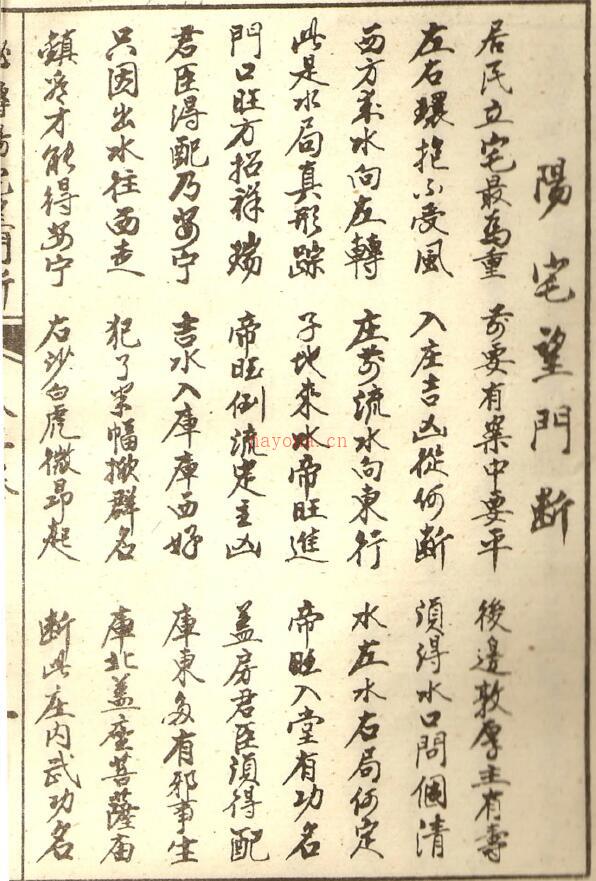 陽宅望門断
居民立宅最為重 前要有案中要平 後邊敦厚主有壽
左右環抱不受風 入庄吉凶從何断 須得水口問個清
西方来水向左轉 庄前流水向東行 水左水右局何定
此是水局真形踪 子地來水帝旺進 帝旺入堂有功名
門口旺方招祥瑞 帝旺倒流定主凶 盖房君臣須得配
君臣得配乃安宁 吉水入庫庫西好 庫東多有邪事生
只因出水往西走 犯了 群名 庫北盖座菩薩庙
鎮 才能得安宁 右沙白虎微昂起 断此庄内武功名
hayota.cn